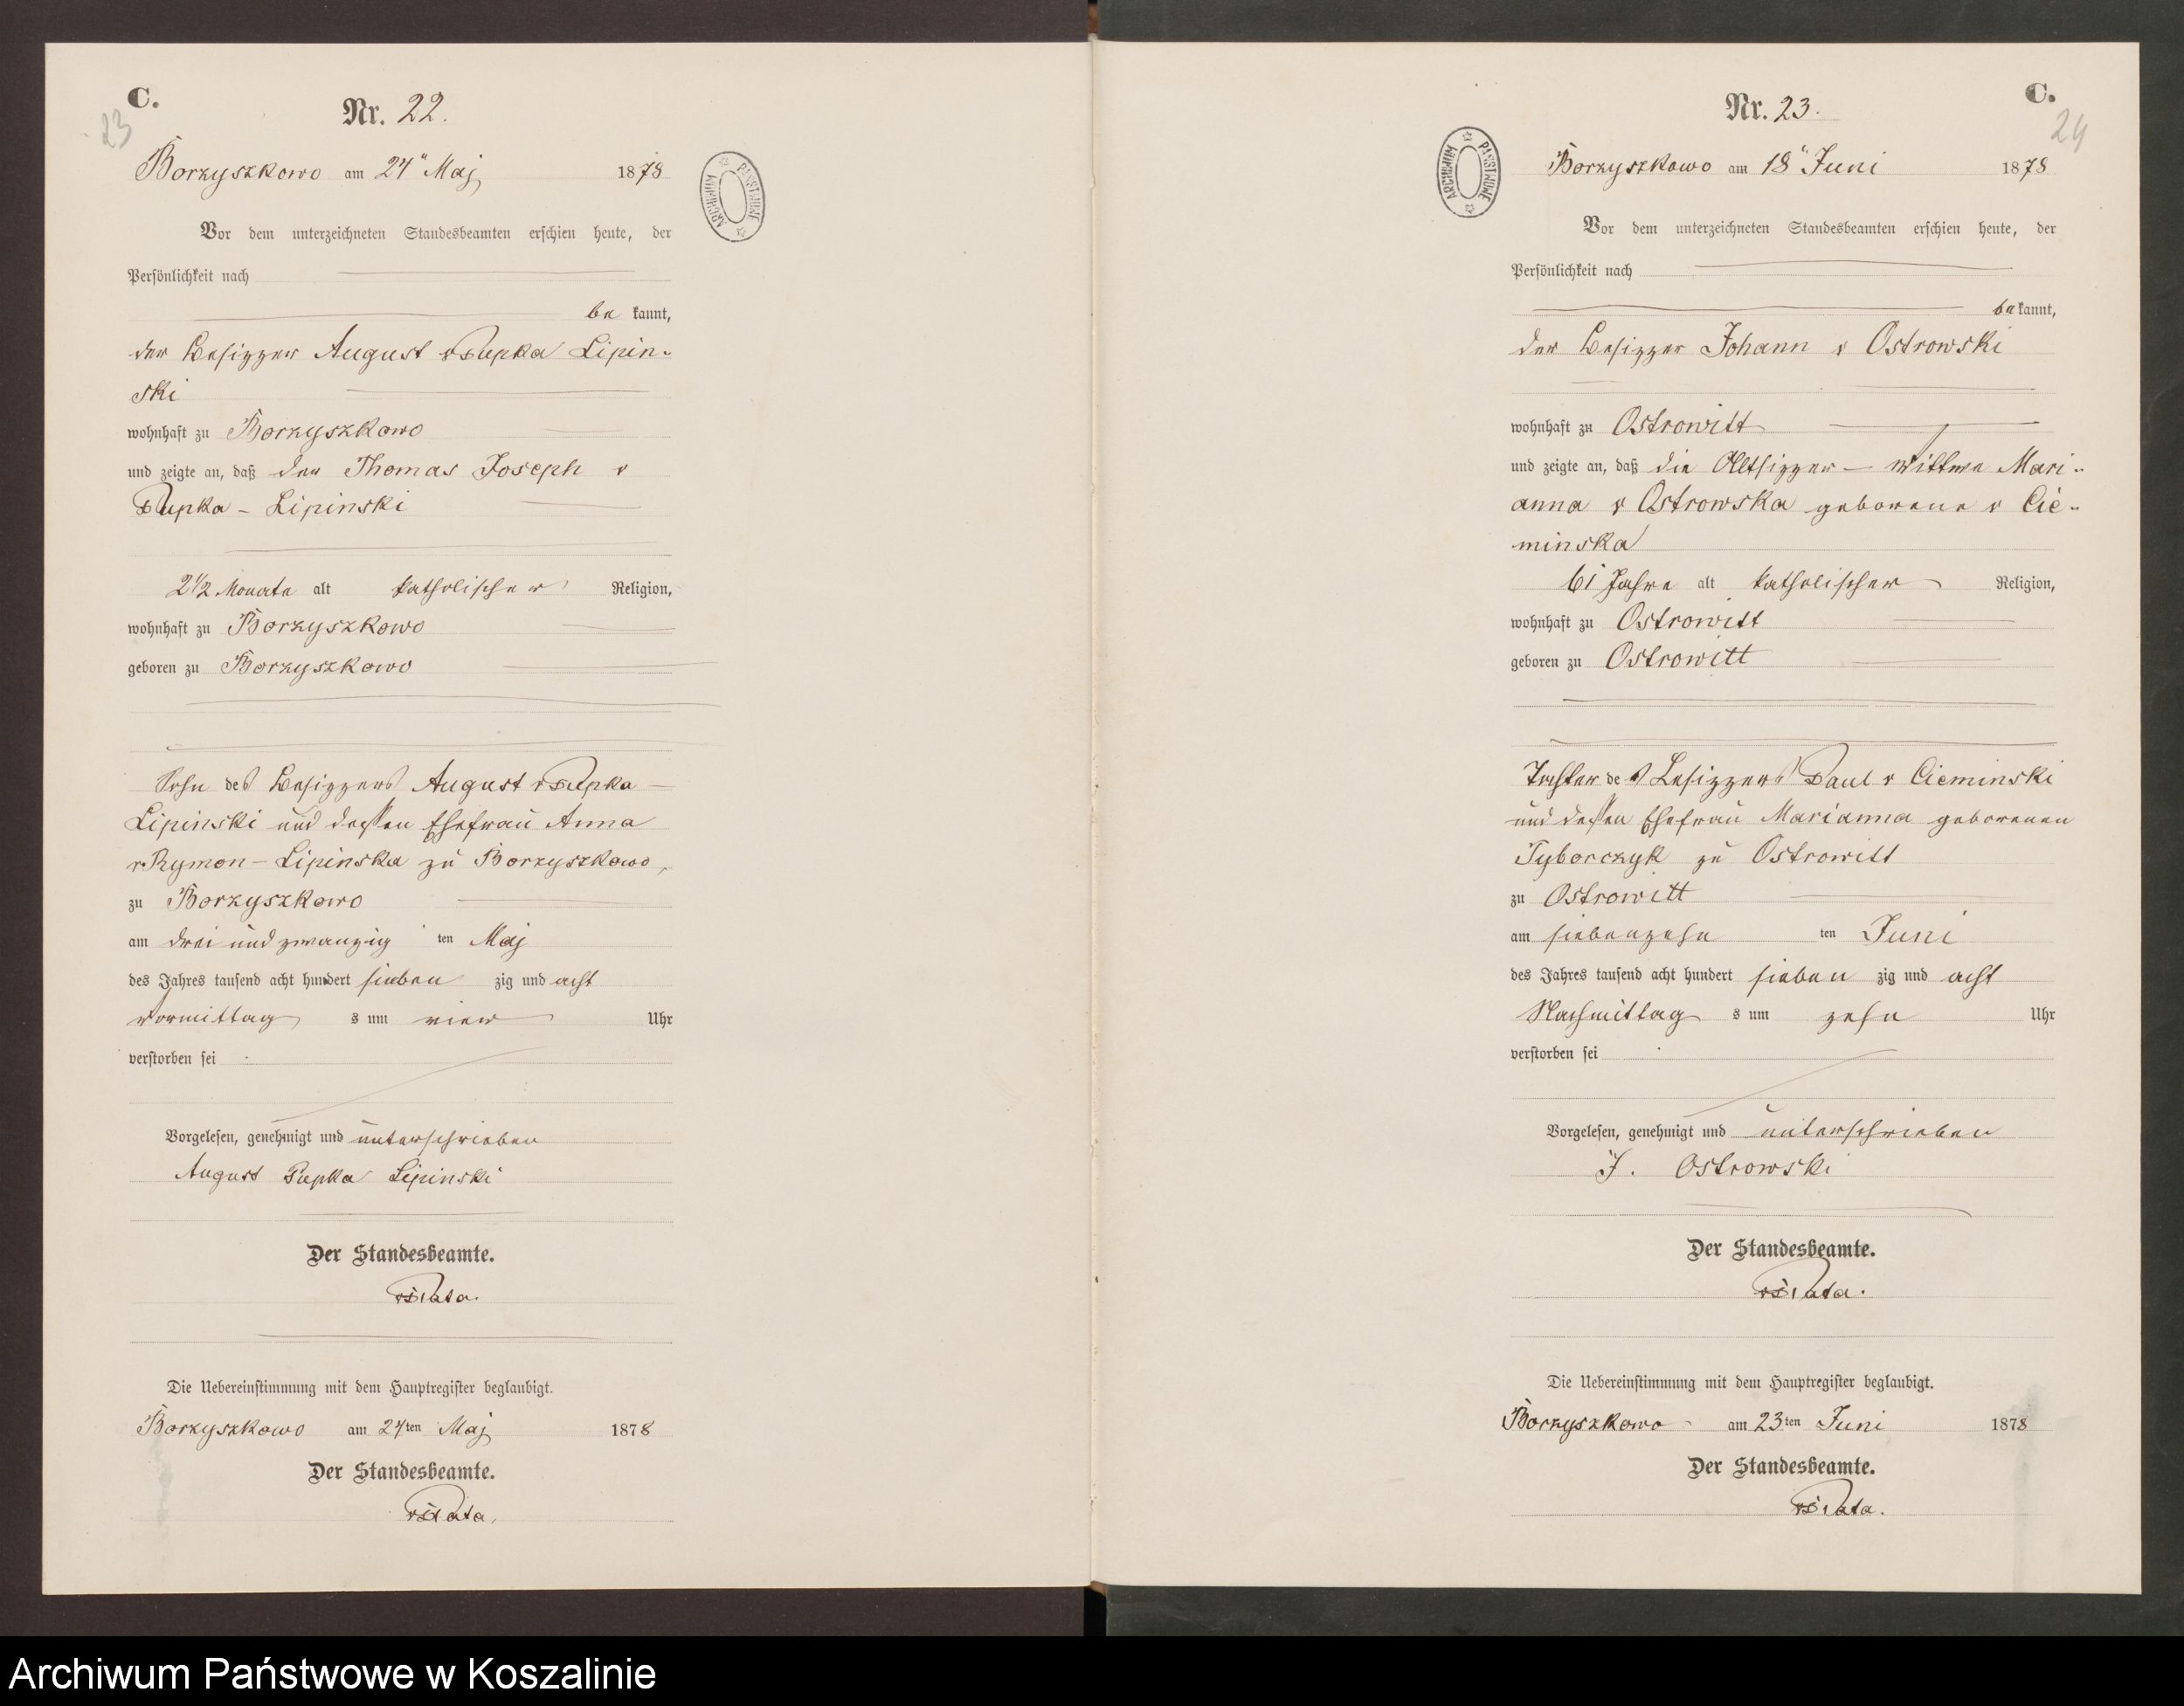 C.
23
Nr. 22.
Borzyszkowo am 24" Maj 1878
ARCHIWUM PAŃSTWOWE
Vor dem unterzeichneten Standesbeamten erschien heute, der
Persönlichkeit nach
be kannt,
der Besizzer August v Pupka Lipin-
ski
wohnhaft zu Borzyszkowo
und zeigte an, daß der Thomas Joseph v
Pupka - Lipinski
2 1/2 Monate alt katholischer Religion,
wohnhaft zu Borzyszkowo
geboren zu Borzyszkowo
Sohn des Besizzers August v Pupka -
Lipinski und dessen Ehefrau Anna
v Rymon - Lipinska zu Borzyszkowo,
zu Borzyszkowo
am drei und zwanzig ten Maj
des Jahres tausend acht hundert sieben zig und acht
vormittag s um vier Uhr
verstorben sei
Vorgelesen, genehmigt und unterschrieben
August Pupka Lipinski
Der Standesbeamte.
Die Uebereinstimmung mit dem Hauptregister beglaubigt.
Borzyszkowo am 24ten Maj 1878
Der Standesbeamte.
C.
24
Nr. 23.
Borzyszkowo am 18" Juni 1878
ARCHIWUM PAŃSTWOWE
Vor dem unterzeichneten Standesbeamten erschien heute, der
Persönlichkeit nach
be kannt,
der Besizzer Johann v Ostrowski
wohnhaft zu Ostrowitt
und zeigte an, daß die Altsizzer - Wittwe Mari-
anna v Ostrowska geborene v Cie-
minska
61 Jahre alt katholischer Religion,
wohnhaft zu Ostrowitt
geboren zu Ostrowitt
Tochter des Besizzers Paul v Cieminski
und dessen Ehefrau Marianna geborenen
Tyborczyk zu Ostrowitt
zu Ostrowitt
am siebenzehn ten Juni
des Jahres tausend acht hundert sieben zig und acht
Nachmittag s um zehn Uhr
verstorben sei
Vorgelesen, genehmigt und unterschrieben
J. Ostrowski
Der Standesbeamte.
Die Uebereinstimmung mit dem Hauptregister beglaubigt.
Borzyszkowo am 23ten Juni 1878
Der Standesbeamte.
Archiwum Państwowe w Koszalinie